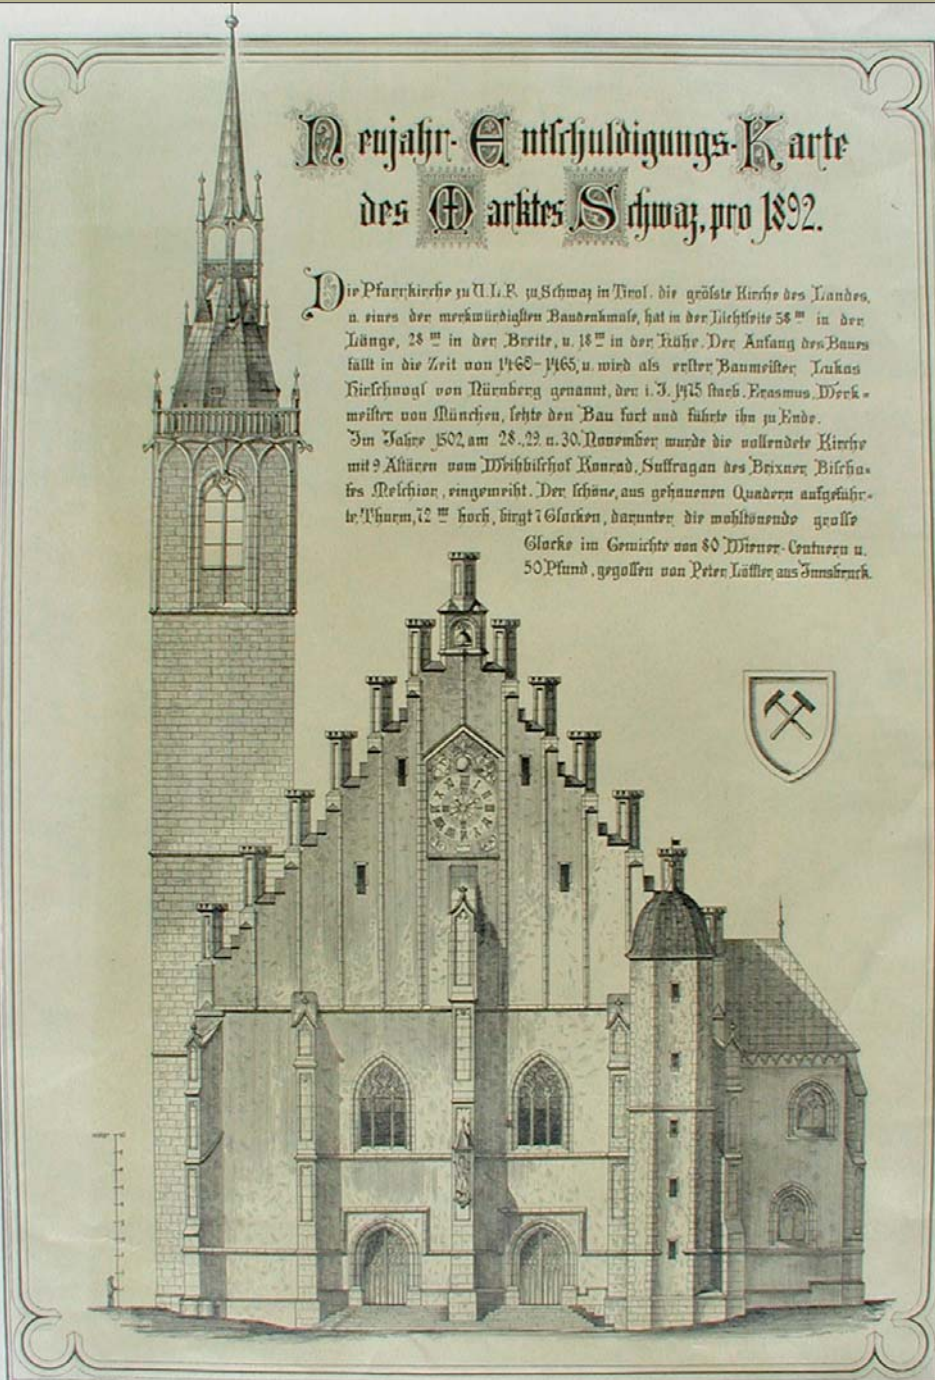 Neujahr-Entschuldigungs-Karte
des Marktes Schwaz, pro 1892.
Die Pfarrkirche zu U.L.F. zu Schwaz in Tirol, die gröſste Kirche des Landes,
u. eines der merkwürdigſten Baudenkmale, hat in der Lichtſeite 58 m in der
Länge, 28 m in der Breite, u. 18 m in der Höhe. Der Anfang des Baues
fällt in die Zeit von 1460-1465, u. wird als erſter Baumeiſter Lukas
Hirſchvogl von Nürnberg genannt, der i. J. 1475 ſtarb. Erasmus, Werk=
meiſter von München, ſetzte den Bau fort und führte ihn zu Ende.
Im Jahre 1502, am 28., 29. u. 30. November, wurde die vollendete Kirche
mit 9 Altären vom Weihbiſchof Konrad, Suffragan des Brixner Biſcho=
fes Melchior, eingeweiht. Der ſchöne, aus gehauenen Quadern aufgeführ=
te Thurm, 72 m hoch, birgt 7 Glocken, darunter die wohltönende groſſe
Glocke im Gewichte von 80 Wiener-Centnern u.
50 Pfund, gegoſſen von Peter Löffler aus Innsbruck.